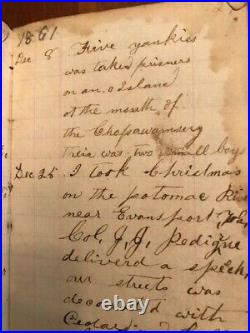 1861
Dec 8 Five yankies
was taken prisners
on an essland
at the mouth of
the Chopawamseg
their was two small boys
Dec 25 I took Christmas
on the potomac
near Evansport
Col. J. J. Pedigue
deliverd a speech
our streets was
decorated with
Cedar